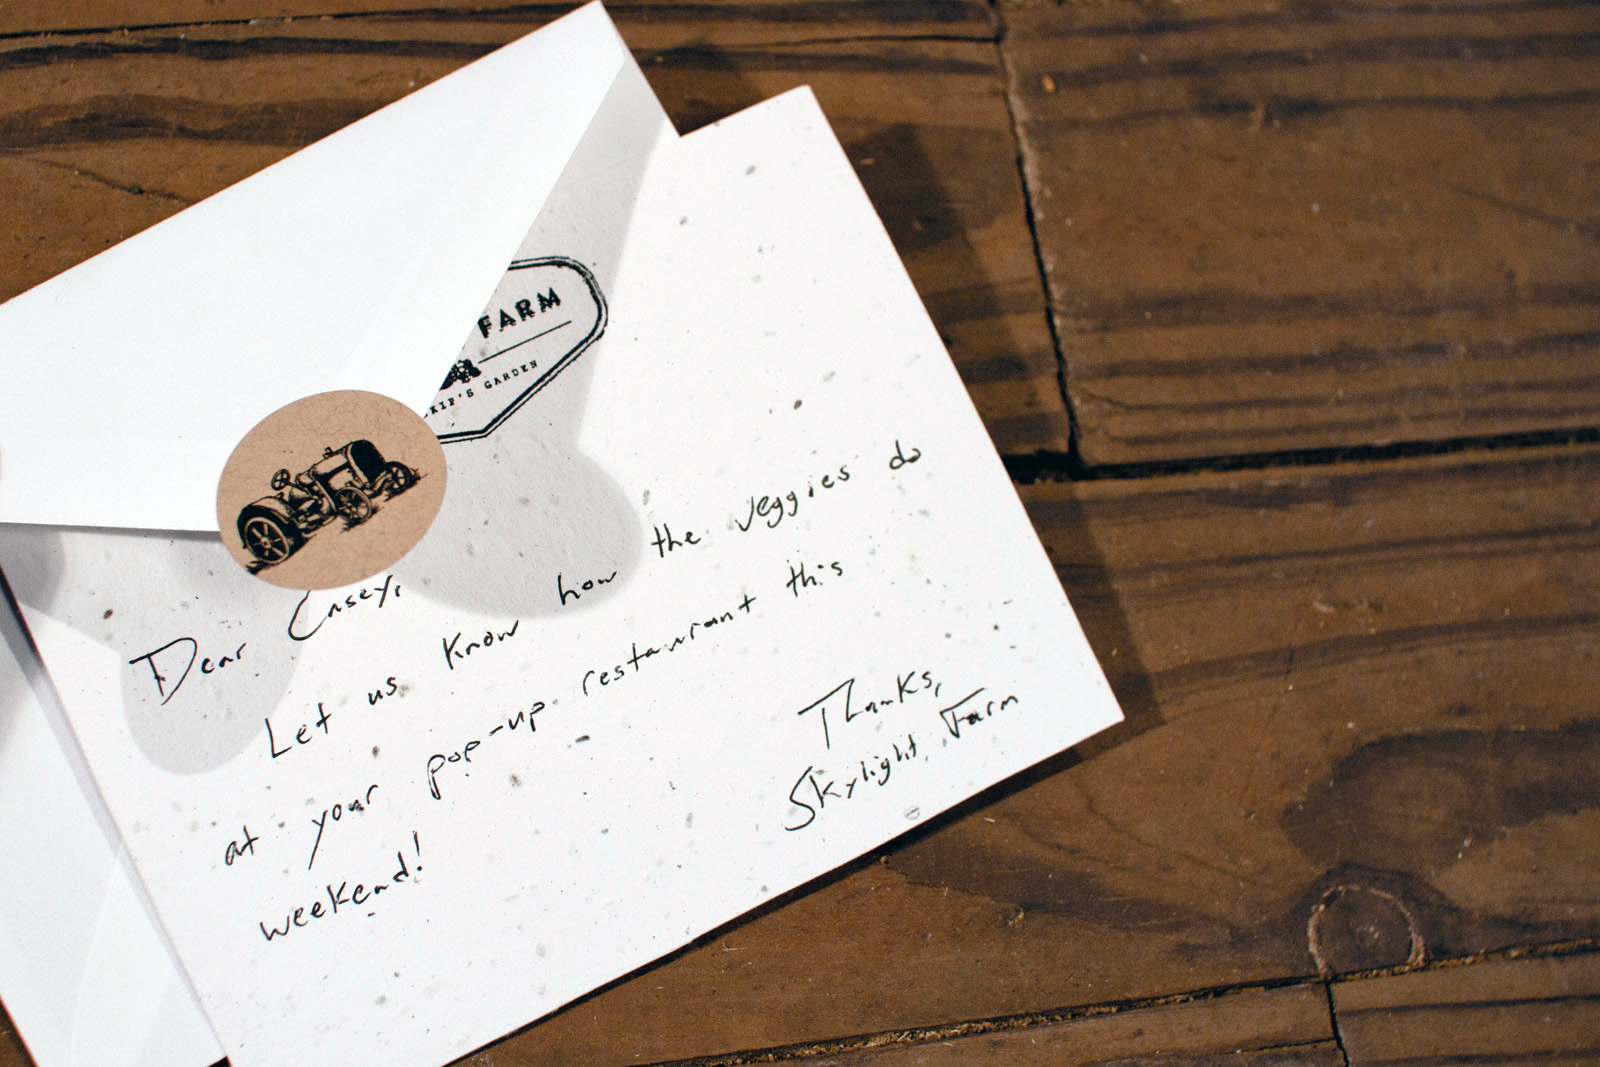 FARM
KIP'S GARDEN
Dear Casey,
Let us know how the veggies do
at your pop-up restaurant this
weekend!
Thanks,
Skylight Farm